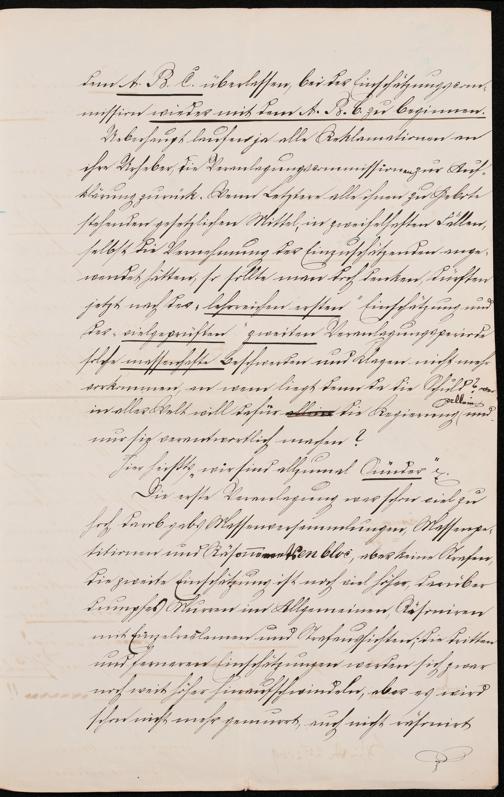 dem A. B. C. überlassen, bei der Einschätzungscom-
mission wieder mit dem A. B. C. zu beginnen.
Ueberhaupt laufen ja alle Reklamationen an
ihre Urheber, die Veranlagungscommissionen zur Auf-
klärung zurück. Wenn Letztere alle ihnen zu Gebote
stehenden gesetzlichen Mittel, in zweifelhaften Fällen,
selbst die Vernehmung des Einzuschätzenden ange-
wendet hätten, so sollte man doch denken, dürften
jetzt nach der „lehrreichen ersten" Einschätzung und
der „vielgeprüften" zweiten Veranlagungsperiode
solche massenhafte Beschwerden und Klagen nicht mehr
vorkommen, an wem liegt denn da die Schuld? wer
in aller Welt will dafür allein die Regierung und
nur sie verantwortlich machen?
Hier heißts „wir sind allzumal Sünder" ec.
Die erste Veranlagung war schon viel zu
hoch, darob gabs Massenversammlungen, Massenpe-
titionen und Räsonnements en bloc, aber keine Strafen,
die zweite Einschätzung ist noch viel höher, darüber
dumpfes Murren im Allgemeinen, Räsoniren
mit Einzelreklamen und Strafaussichten; die dritten
und ferneren Einschätzungen werden sich zwar
noch weit höher hinaufschwindeln, aber es wird
schon nicht mehr gemurrt, auch nicht räsonirt